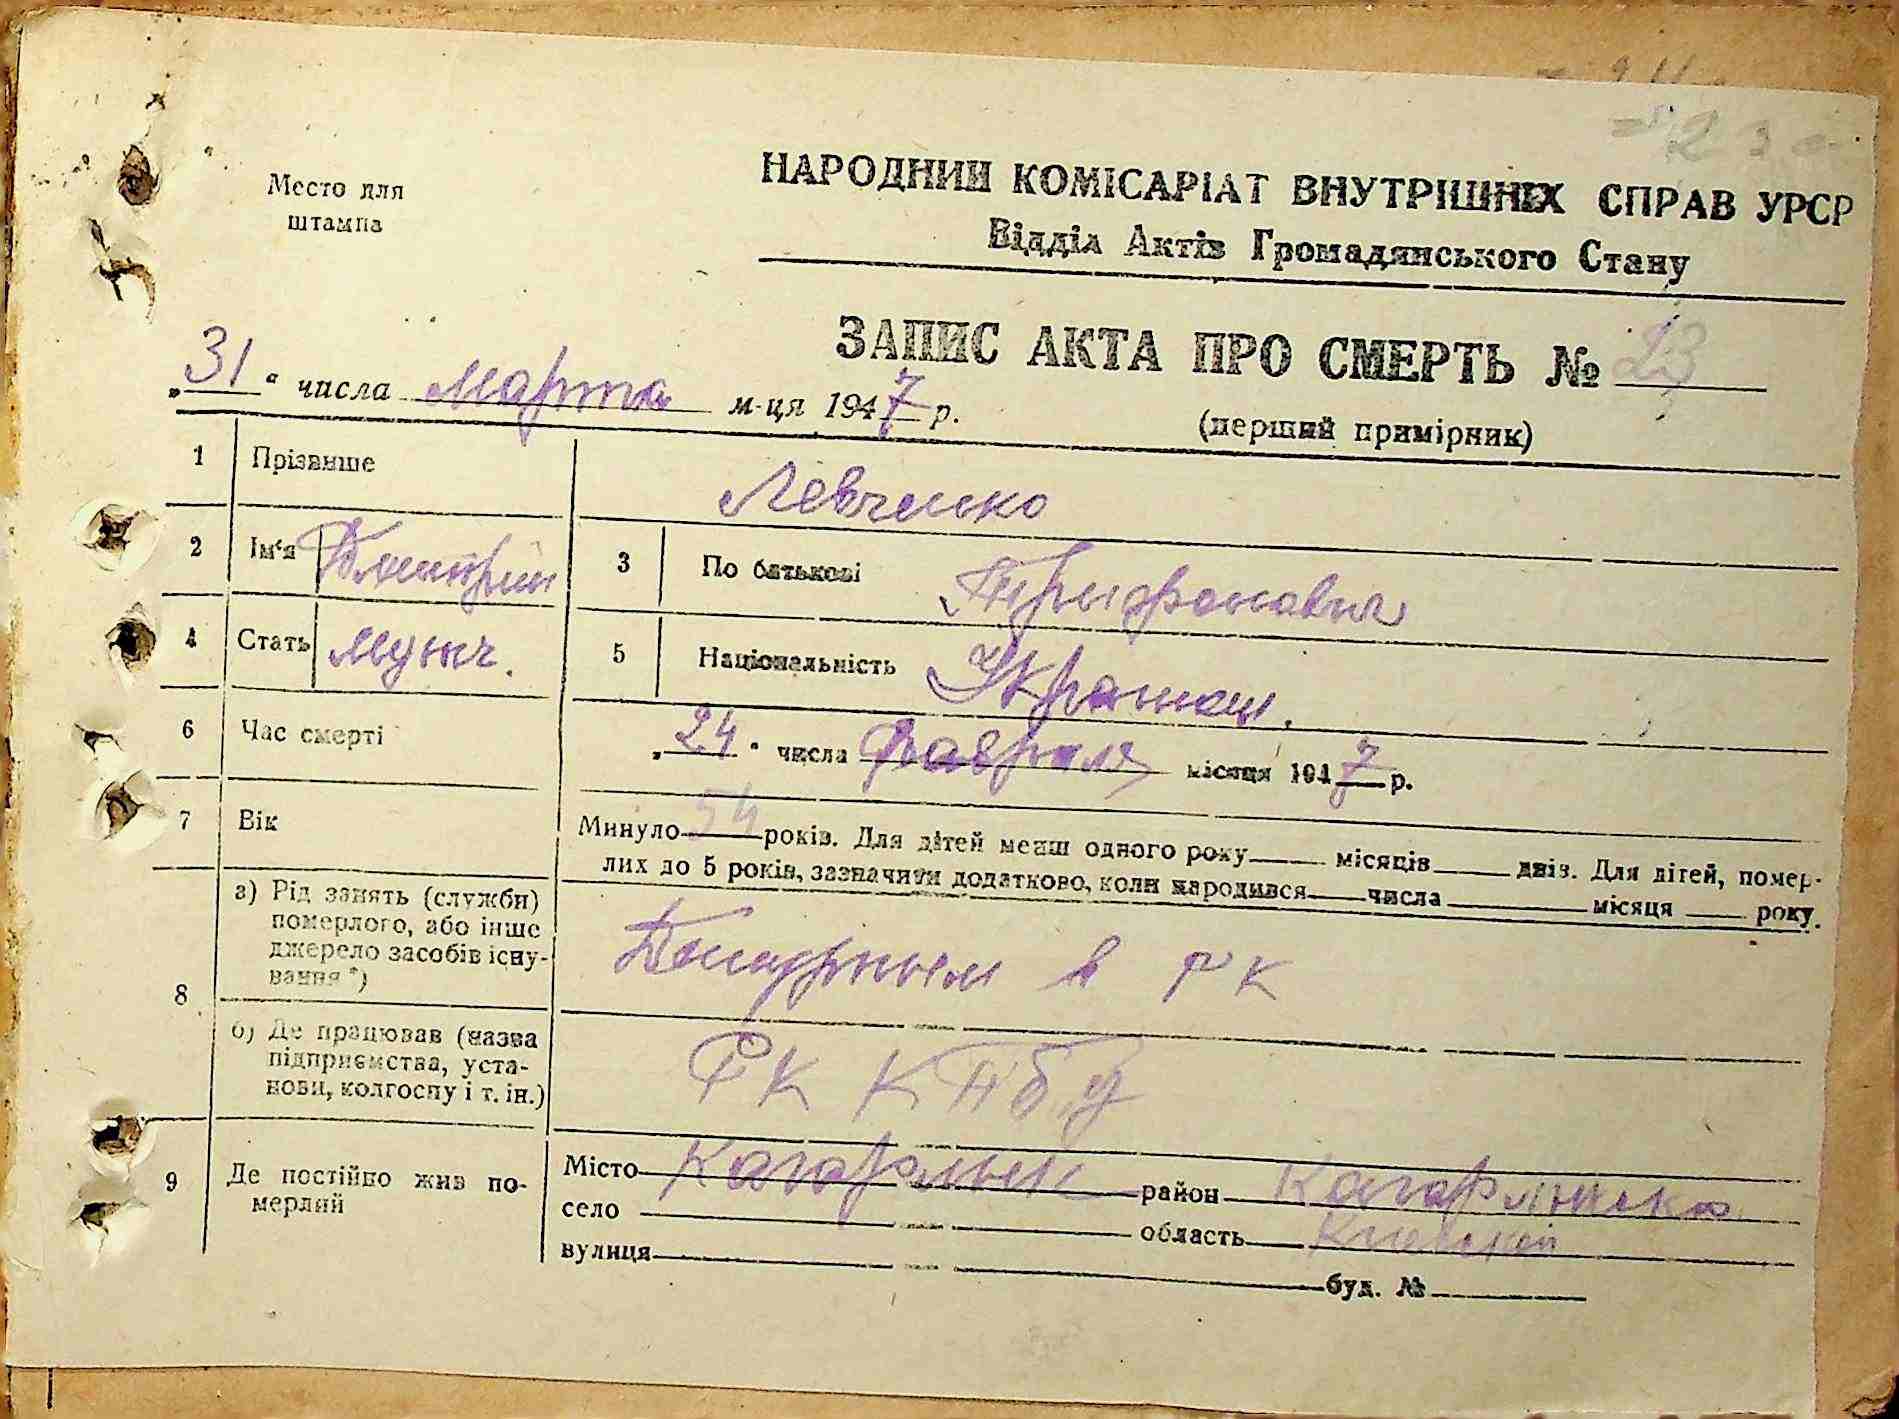 Место для
штампа
НАРОДНИЙ КОМІСАРІАТ ВНУТРІШНІХ СПРАВ УРСР
Відділ Актів Громадянського Стану
ЗАПИС АКТА ПРО СМЕРТЬ № 23
„31" числа Марта м-ця 1947 р.
(перший примірник)
1 Прізвище Левченко
2 Ім'я Дмитрий 3 По батькові Трифонович
4 Стать мужч. 5 Національність Украинец.
6 Час смерті „24" числа февраля місяця 1947 р.
7 Вік Минуло 54 років. Для дітей менш одного року місяців днів. Для дітей, помер-
лих до 5 років, зазначити додатково, коли народився числа місяця року.
8 а) Рід занять (служби)
померлого, або інше
джерело засобів існу-
вання *)
Дежурным в РК
б) Де працював (назва
підприємства, уста-
нови, колгоспу і т. ін.)
РК КПбУ
9 Де постійно жив по-
мерлий
Місто Кагарлык район Кагарлыкско
село область Киевской
вулиця буд. №